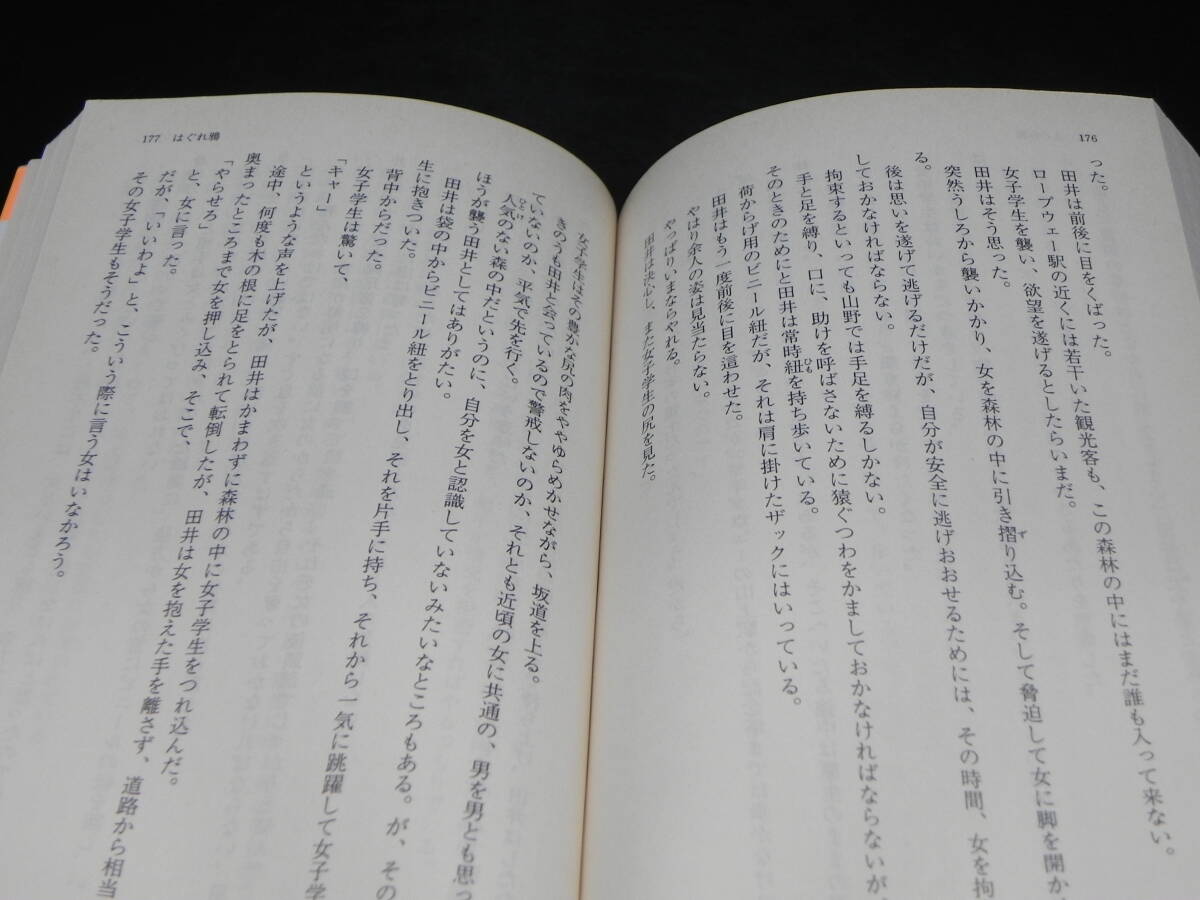 176
った。
田井は前後に目をくばった。
ロープウェー駅の近くには若干いた観光客も、この森林の中にはまだ誰も入って来ない。
女子学生を襲い、欲望を遂げるとしたらいまだ。
田井はそう思った。
突然うしろから襲いかかり、女を森林の中に引き摺り込む。そして脅迫して女に脚を開か
る。
後は思いを遂げて逃げるだけだが、自分が安全に逃げおおせるためには、その時間、女を拘
しておかなければならない。
拘束するといっても山野では手足を縛るしかない。
手と足を縛り、口に、助けを呼ばさないために猿ぐつわをかましておかなければならないが
そのときのためにと田井は常時紐を持ち歩いている。
荷からげ用のビニール紐だが、それは肩に掛けたザックにはいっている。
田井はもう一度前後に目を這わせた。
やはり余人の姿は見当たらない。
やっぱりいまならやれる。
田井は決心し、また女子学生の尻を見た。
177 はぐれ鴉
女子学生はその豊かな尻の肉をややゆらめかせながら、坂道を上る。
きのうも田井と会っているので警戒しないのか、それとも近頃の女に共通の、男を男とも思っ
ていないのか、平気で先を行く。
人気のない森の中だというのに、自分を女と認識していないみたいなところもある。が、その
ほうが襲う田井としてはありがたい。
田井は袋の中からビニール紐をとり出し、それを片手に持ち、それから一気に跳躍して女子学
生に抱きついた。
背中からだった。
女子学生は驚いて、
「キャー」
というような声を上げたが、田井はかまわずに森林の中に女子学生をつれ込んだ。
途中、何度も木の根に足をとられて転倒したが、田井は女を抱えた手を離さず、道路から相当
奥まったところまで女を押し込み、そこで、
「やらせろ」
と、女に言った。
だが、「いいわよ」と、こういう際に言う女はいなかろう。
その女子学生もそうだった。